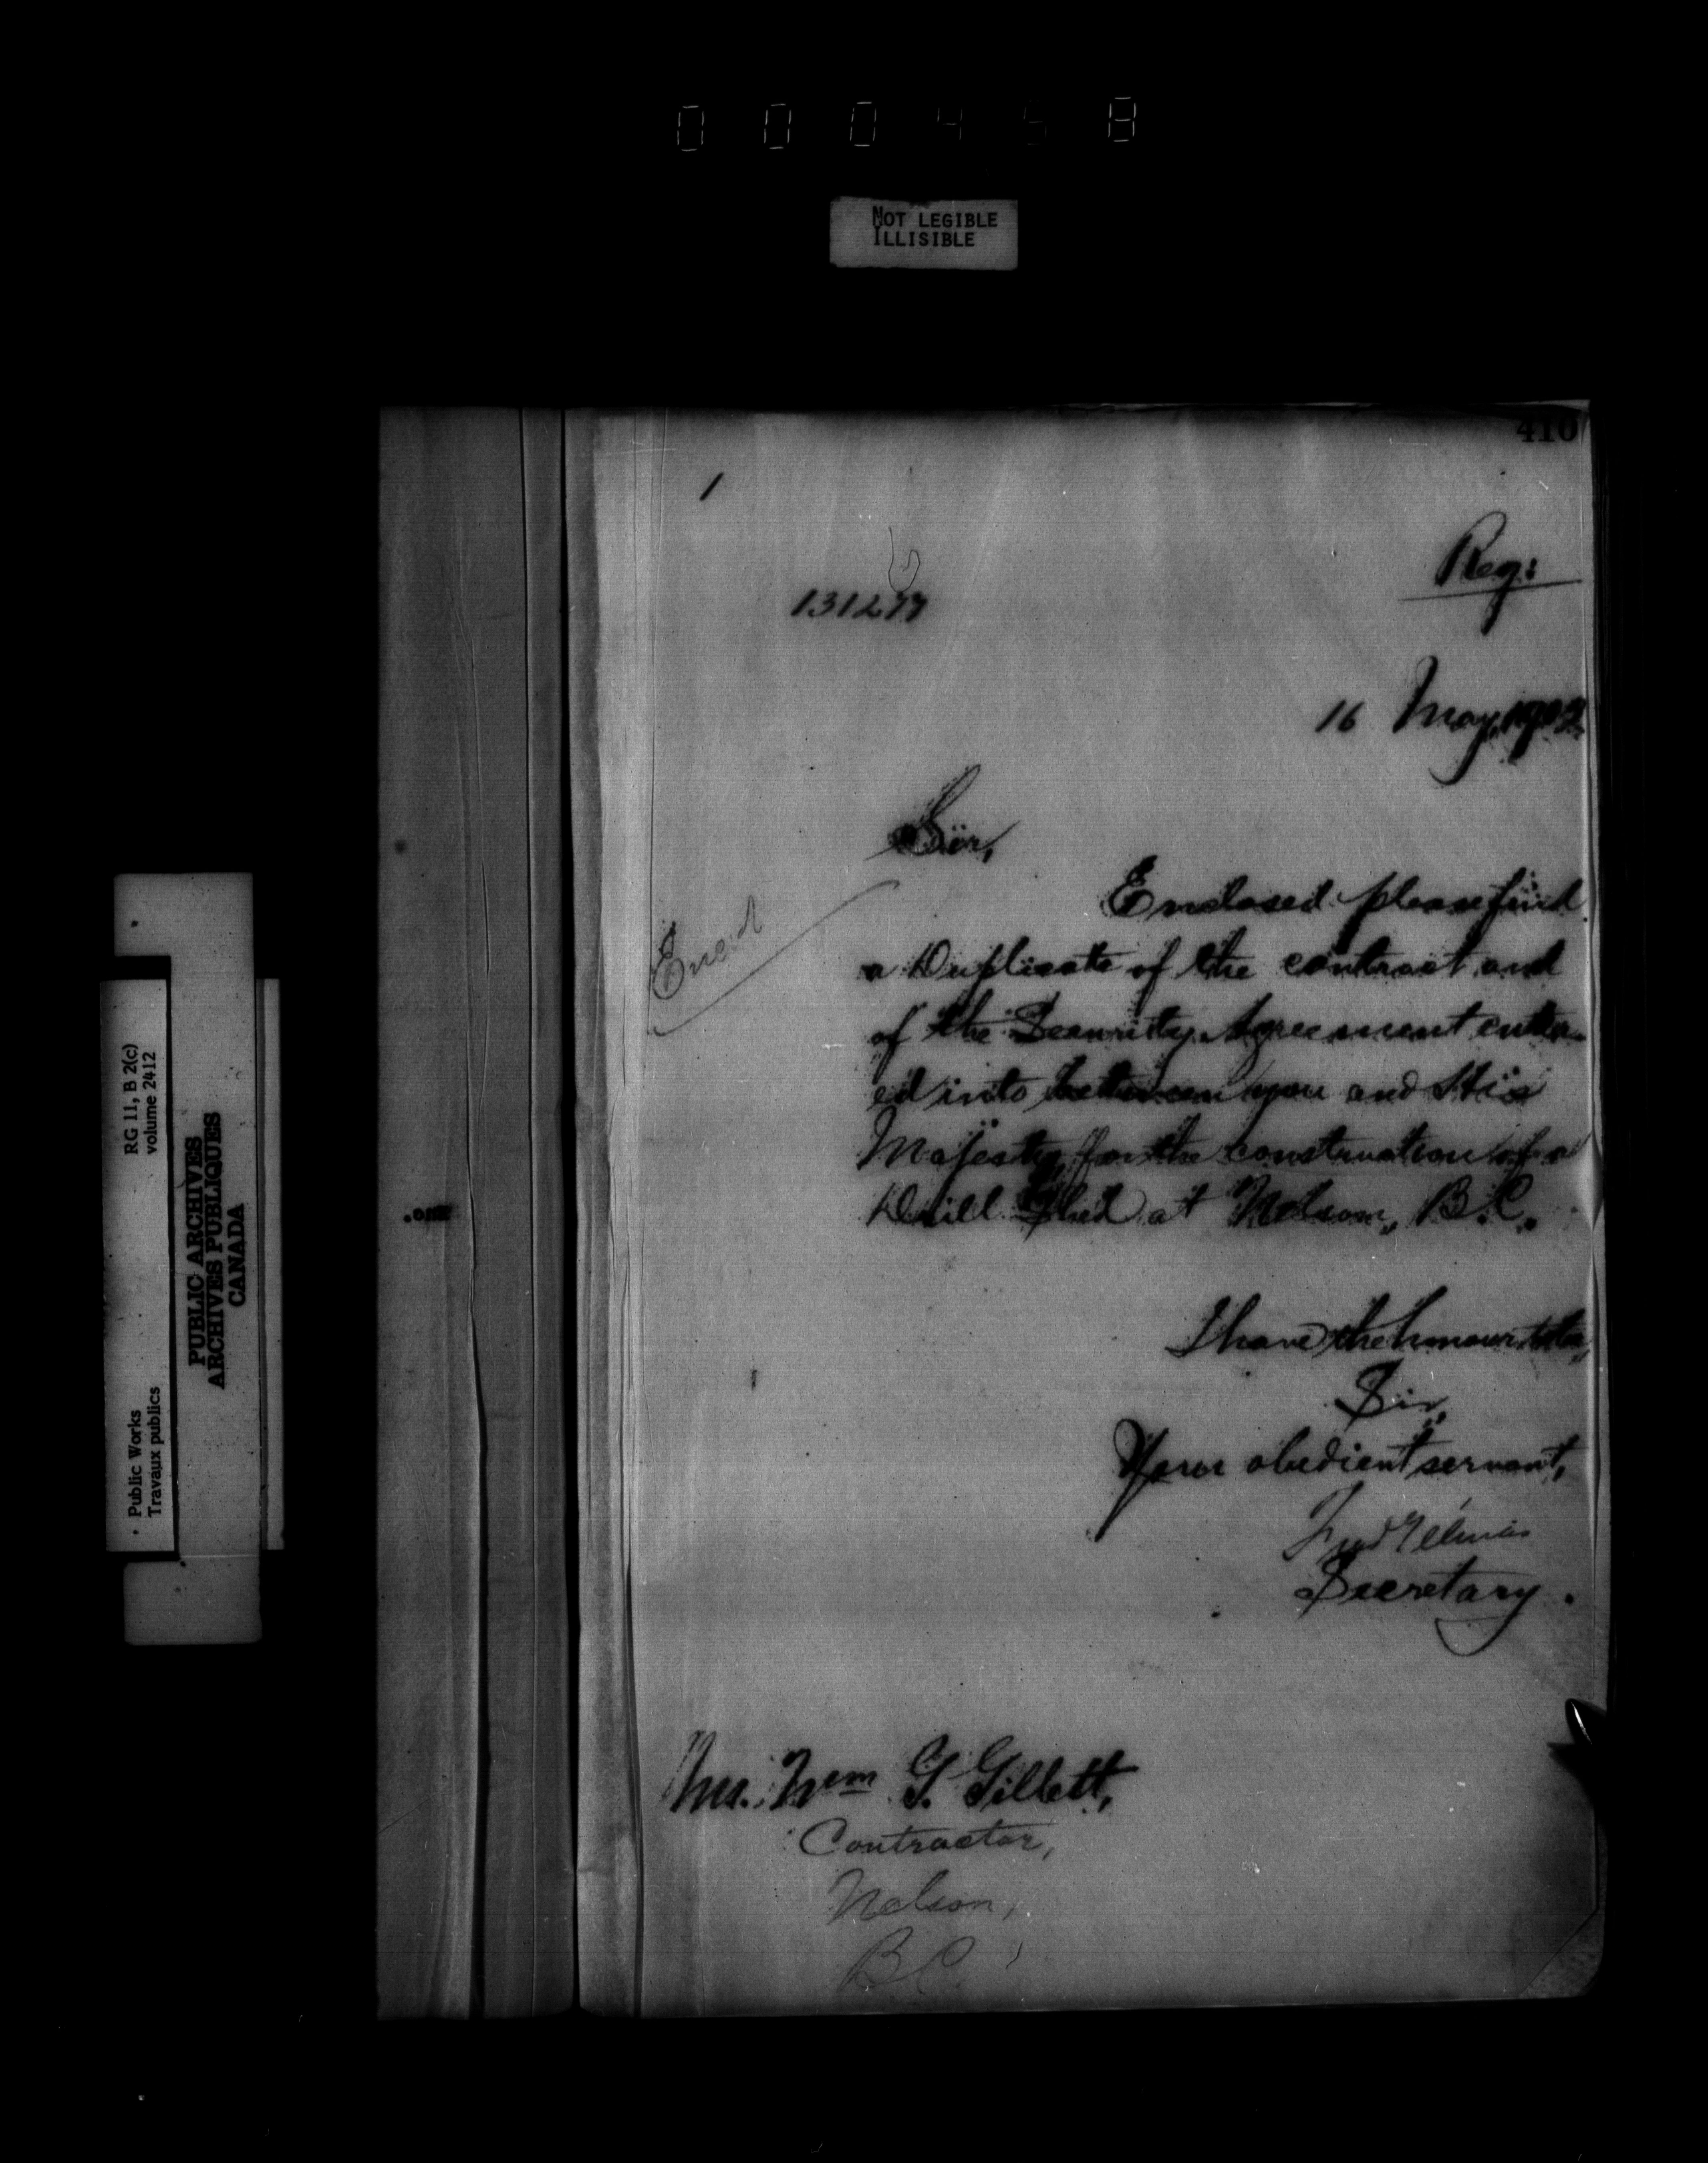 000458
NOT LEGIBLE
ILLISIBLE
410
1
Reg:
131277
16 May, 1902
Sir,
Enclosed please find
a Duplicate of the contract and
of the Security Agreement enter-
ed into between you and His
Majesty, for the construction of a
Drill Shed at Nelson, B.C.
Encd
I have the honour to be,
Sir,
Your obedient servant,
Fred Gélinas
Secretary.
Mr. Wm G. Gillett,
Contractor,
Nelson,
B.C.
RG 11, B 2(c)
volume 2412
Public Works
Travaux publics
PUBLIC ARCHIVES
ARCHIVES PUBLIQUES
CANADA